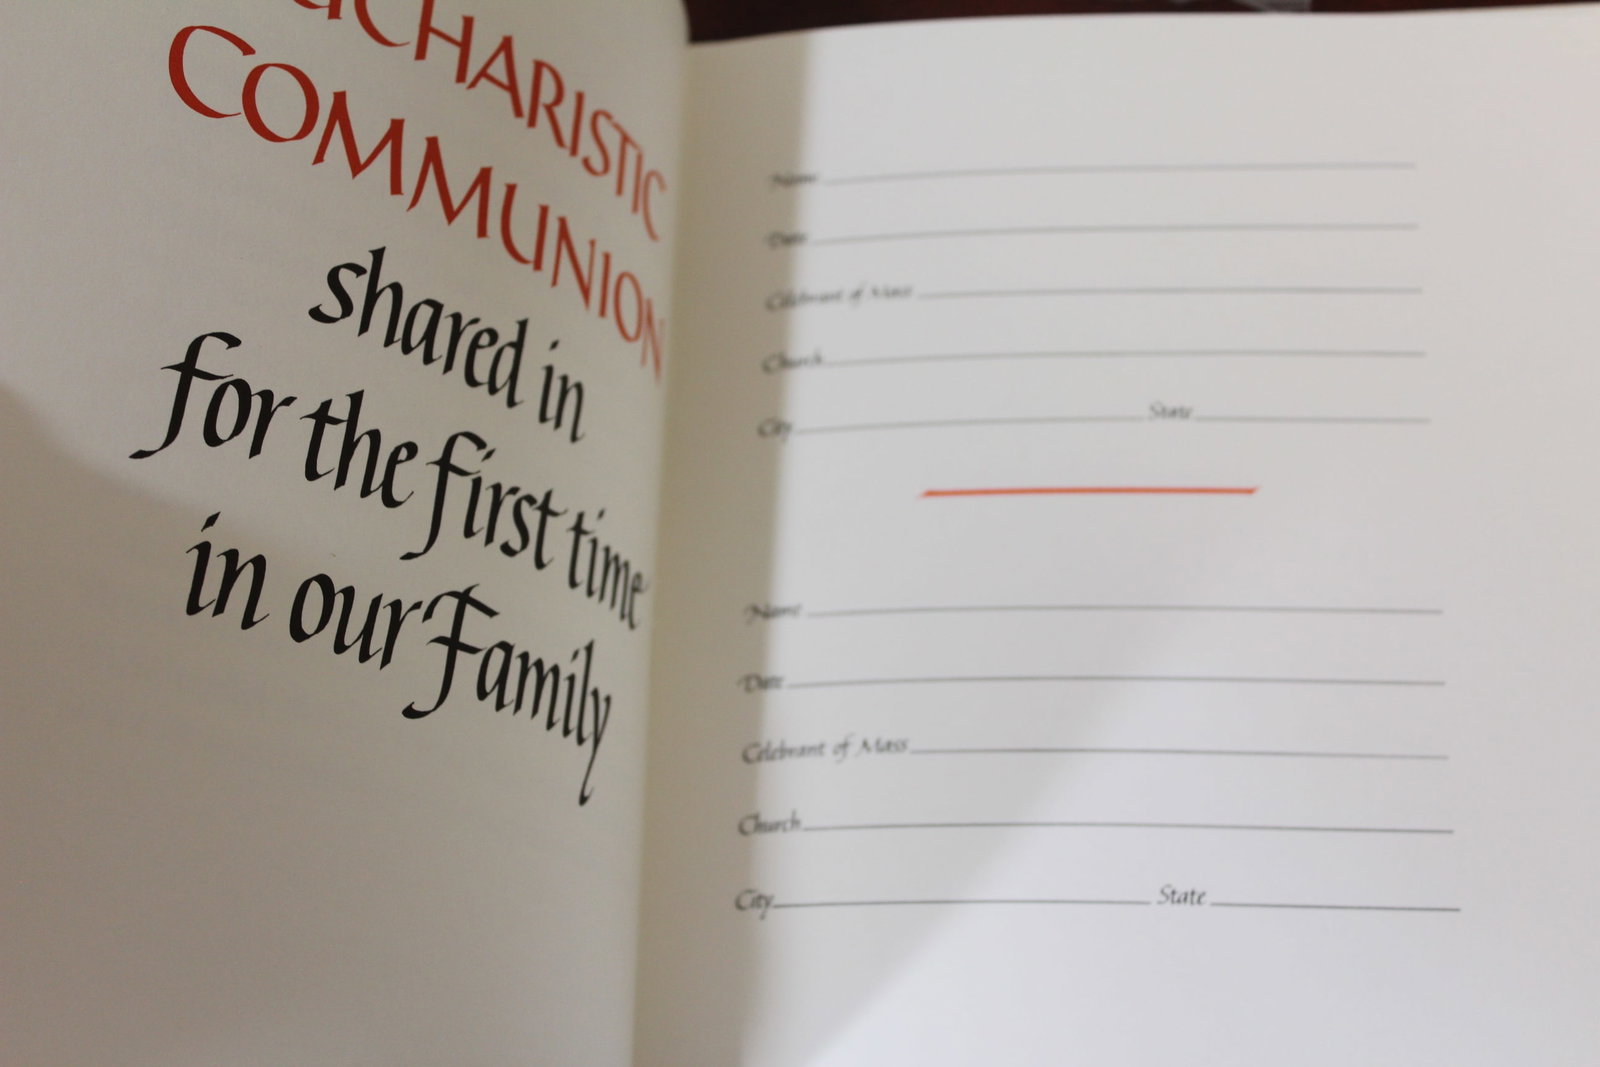 UCHARISTIC
COMMUNION
shared in
for the first time
in our Family
Name
Date
Celebrant of Mass
Church
City State
Name
Date
Celebrant of Mass
Church
City State